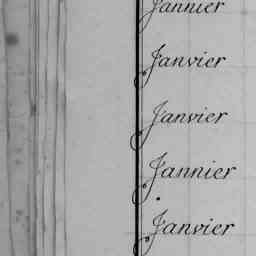 Jannier
Janvier
Janvier
Jannier
Janvier